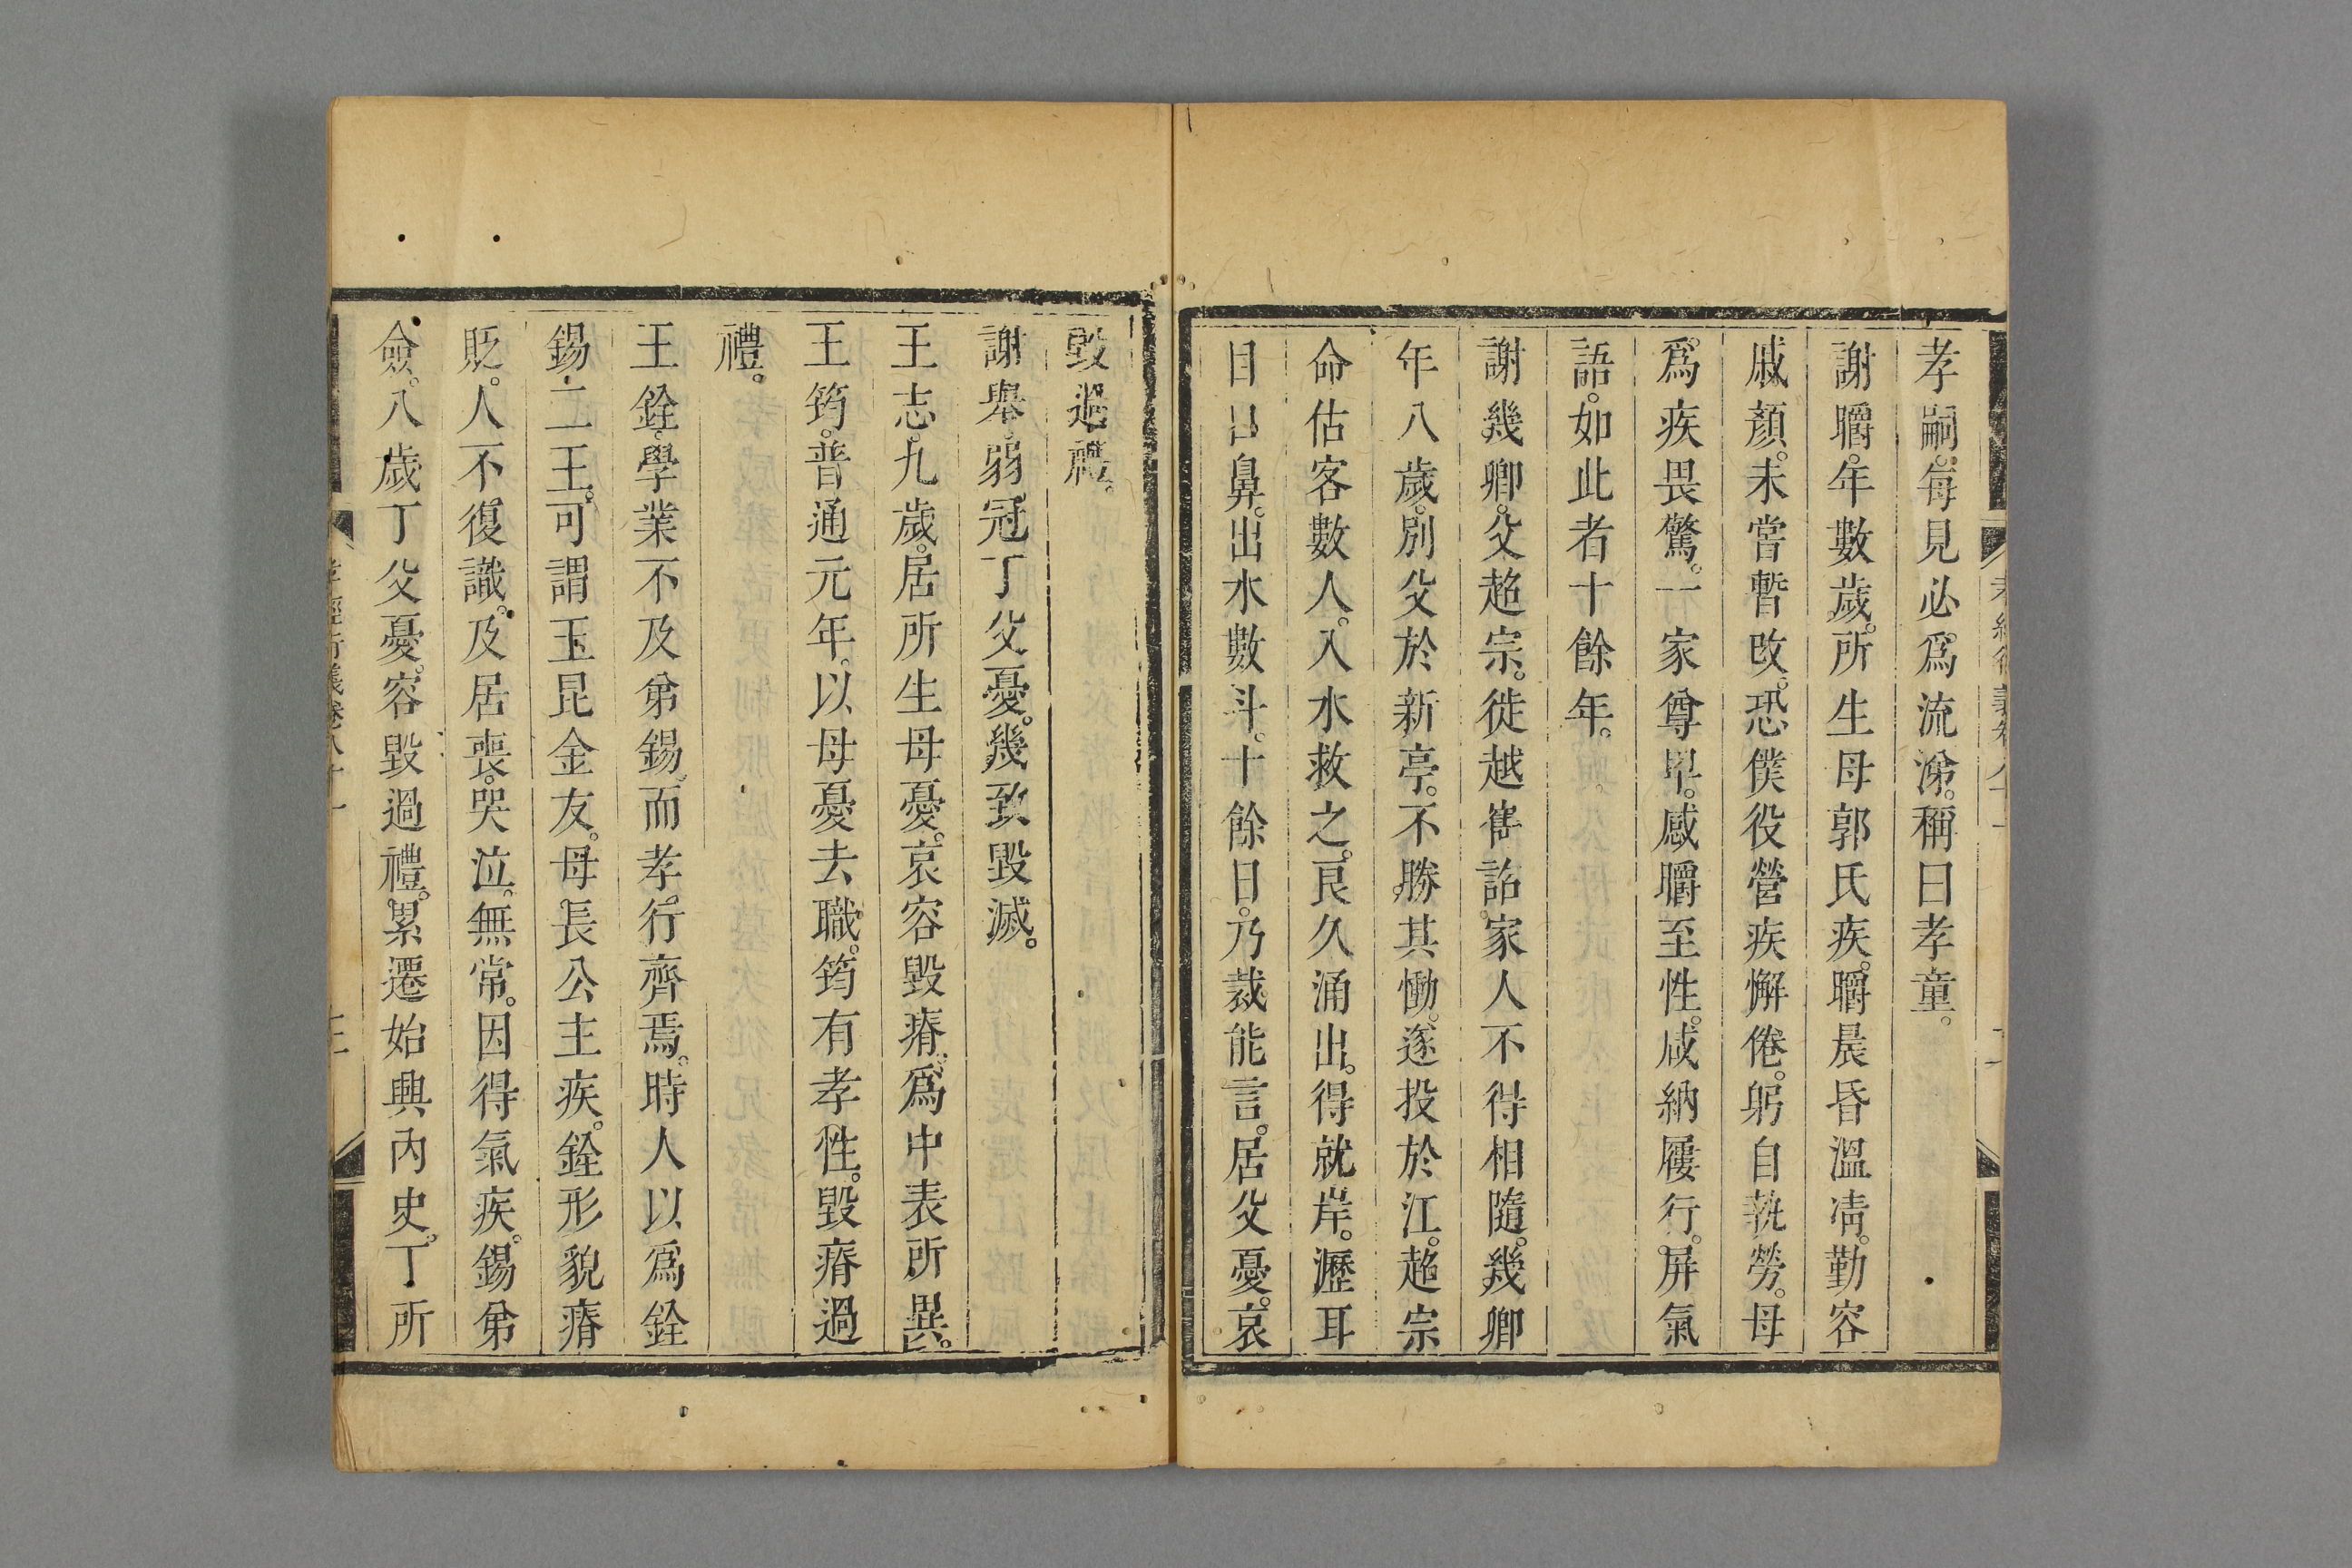 孝嗣。每見必爲流涕。稱曰孝童。
謝𦗒。年數歲。所生母郭氏疾。𦗒晨昏溫凊。勤容
戚顏。未嘗暫改。恐僕役營疾懈倦。躬自執勞。母
爲疾畏驚。一家尊卑。感𦗒至性。咸納屨行。屏氣
語。如此者十餘年。
謝幾卿。父超宗。徙越巂。詔家人不得相隨。幾卿
年八歲。別父於新亭。不勝其慟。遂投於江。超宗
命估客數人。入水救之。良久涌出。得就岸。瀝耳
目口鼻。出水數斗。十餘日。乃裁能言。居父憂。哀
毀過禮。
謝舉。弱冠丁父憂。幾致毀滅。
王志。九歲。居所生母憂。哀容毀瘠。爲中表所異。
王筠。普通元年。以母憂去職。筠有孝性。毀瘠過
禮。
王銓。學業不及弟錫。而孝行齊焉。時人以爲銓
錫二王。可謂玉昆金友。母長公主疾。銓形貌瘠
貶。人不復識。及居喪。哭泣無常。因得氣疾。錫弟
僉。八歲丁父憂。容毀過禮。累遷始興內史。丁所
孝經衍義卷八十一